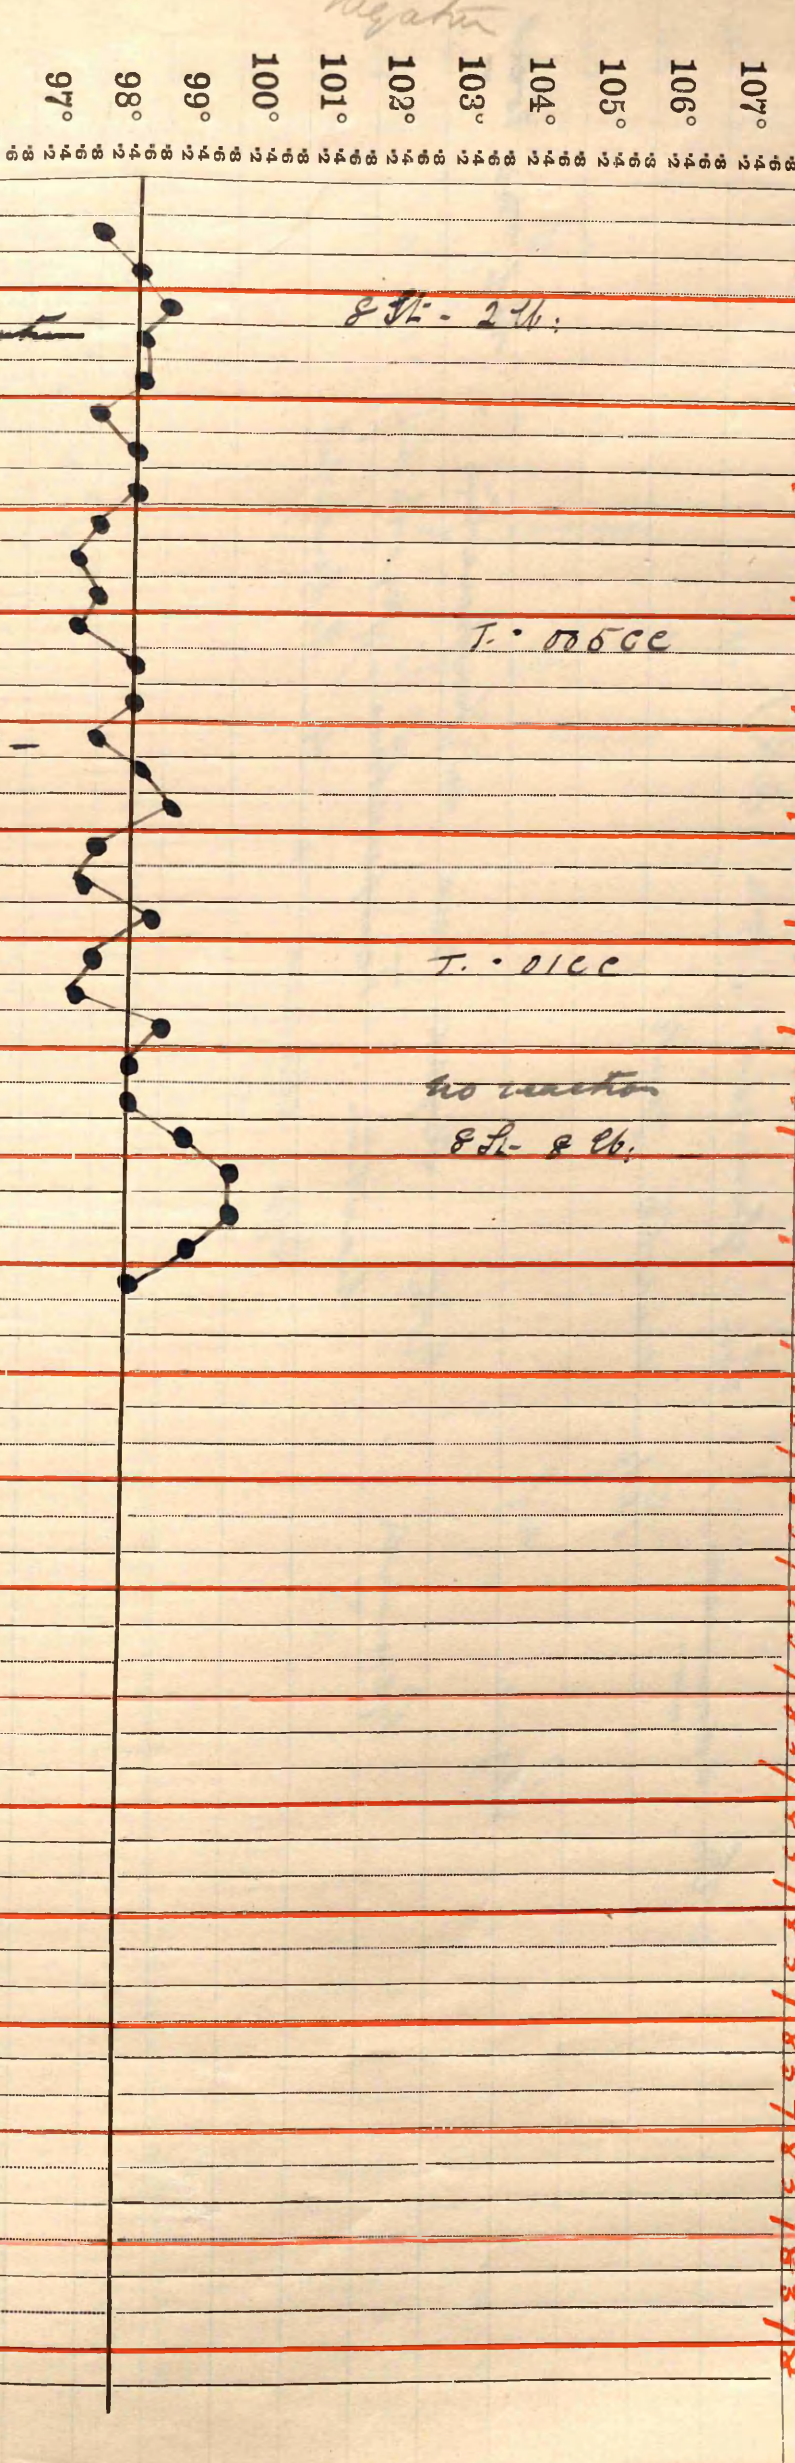 97° 98° 99° 100° 101° 102° 103° 104° 105° 106° 107°
6 8 2 4 6 8 2 4 6 8 2 4 6 8 2 4 6 8 2 4 6 8 2 4 6 8 2 4 6 8 2 4 6 8 2 4 6 8 2 4 6 8 2 4 6 8
8 St - 2 lb.
T. · 005 CC
T. · 01 CC
No reaction
8 St - 8 lb.